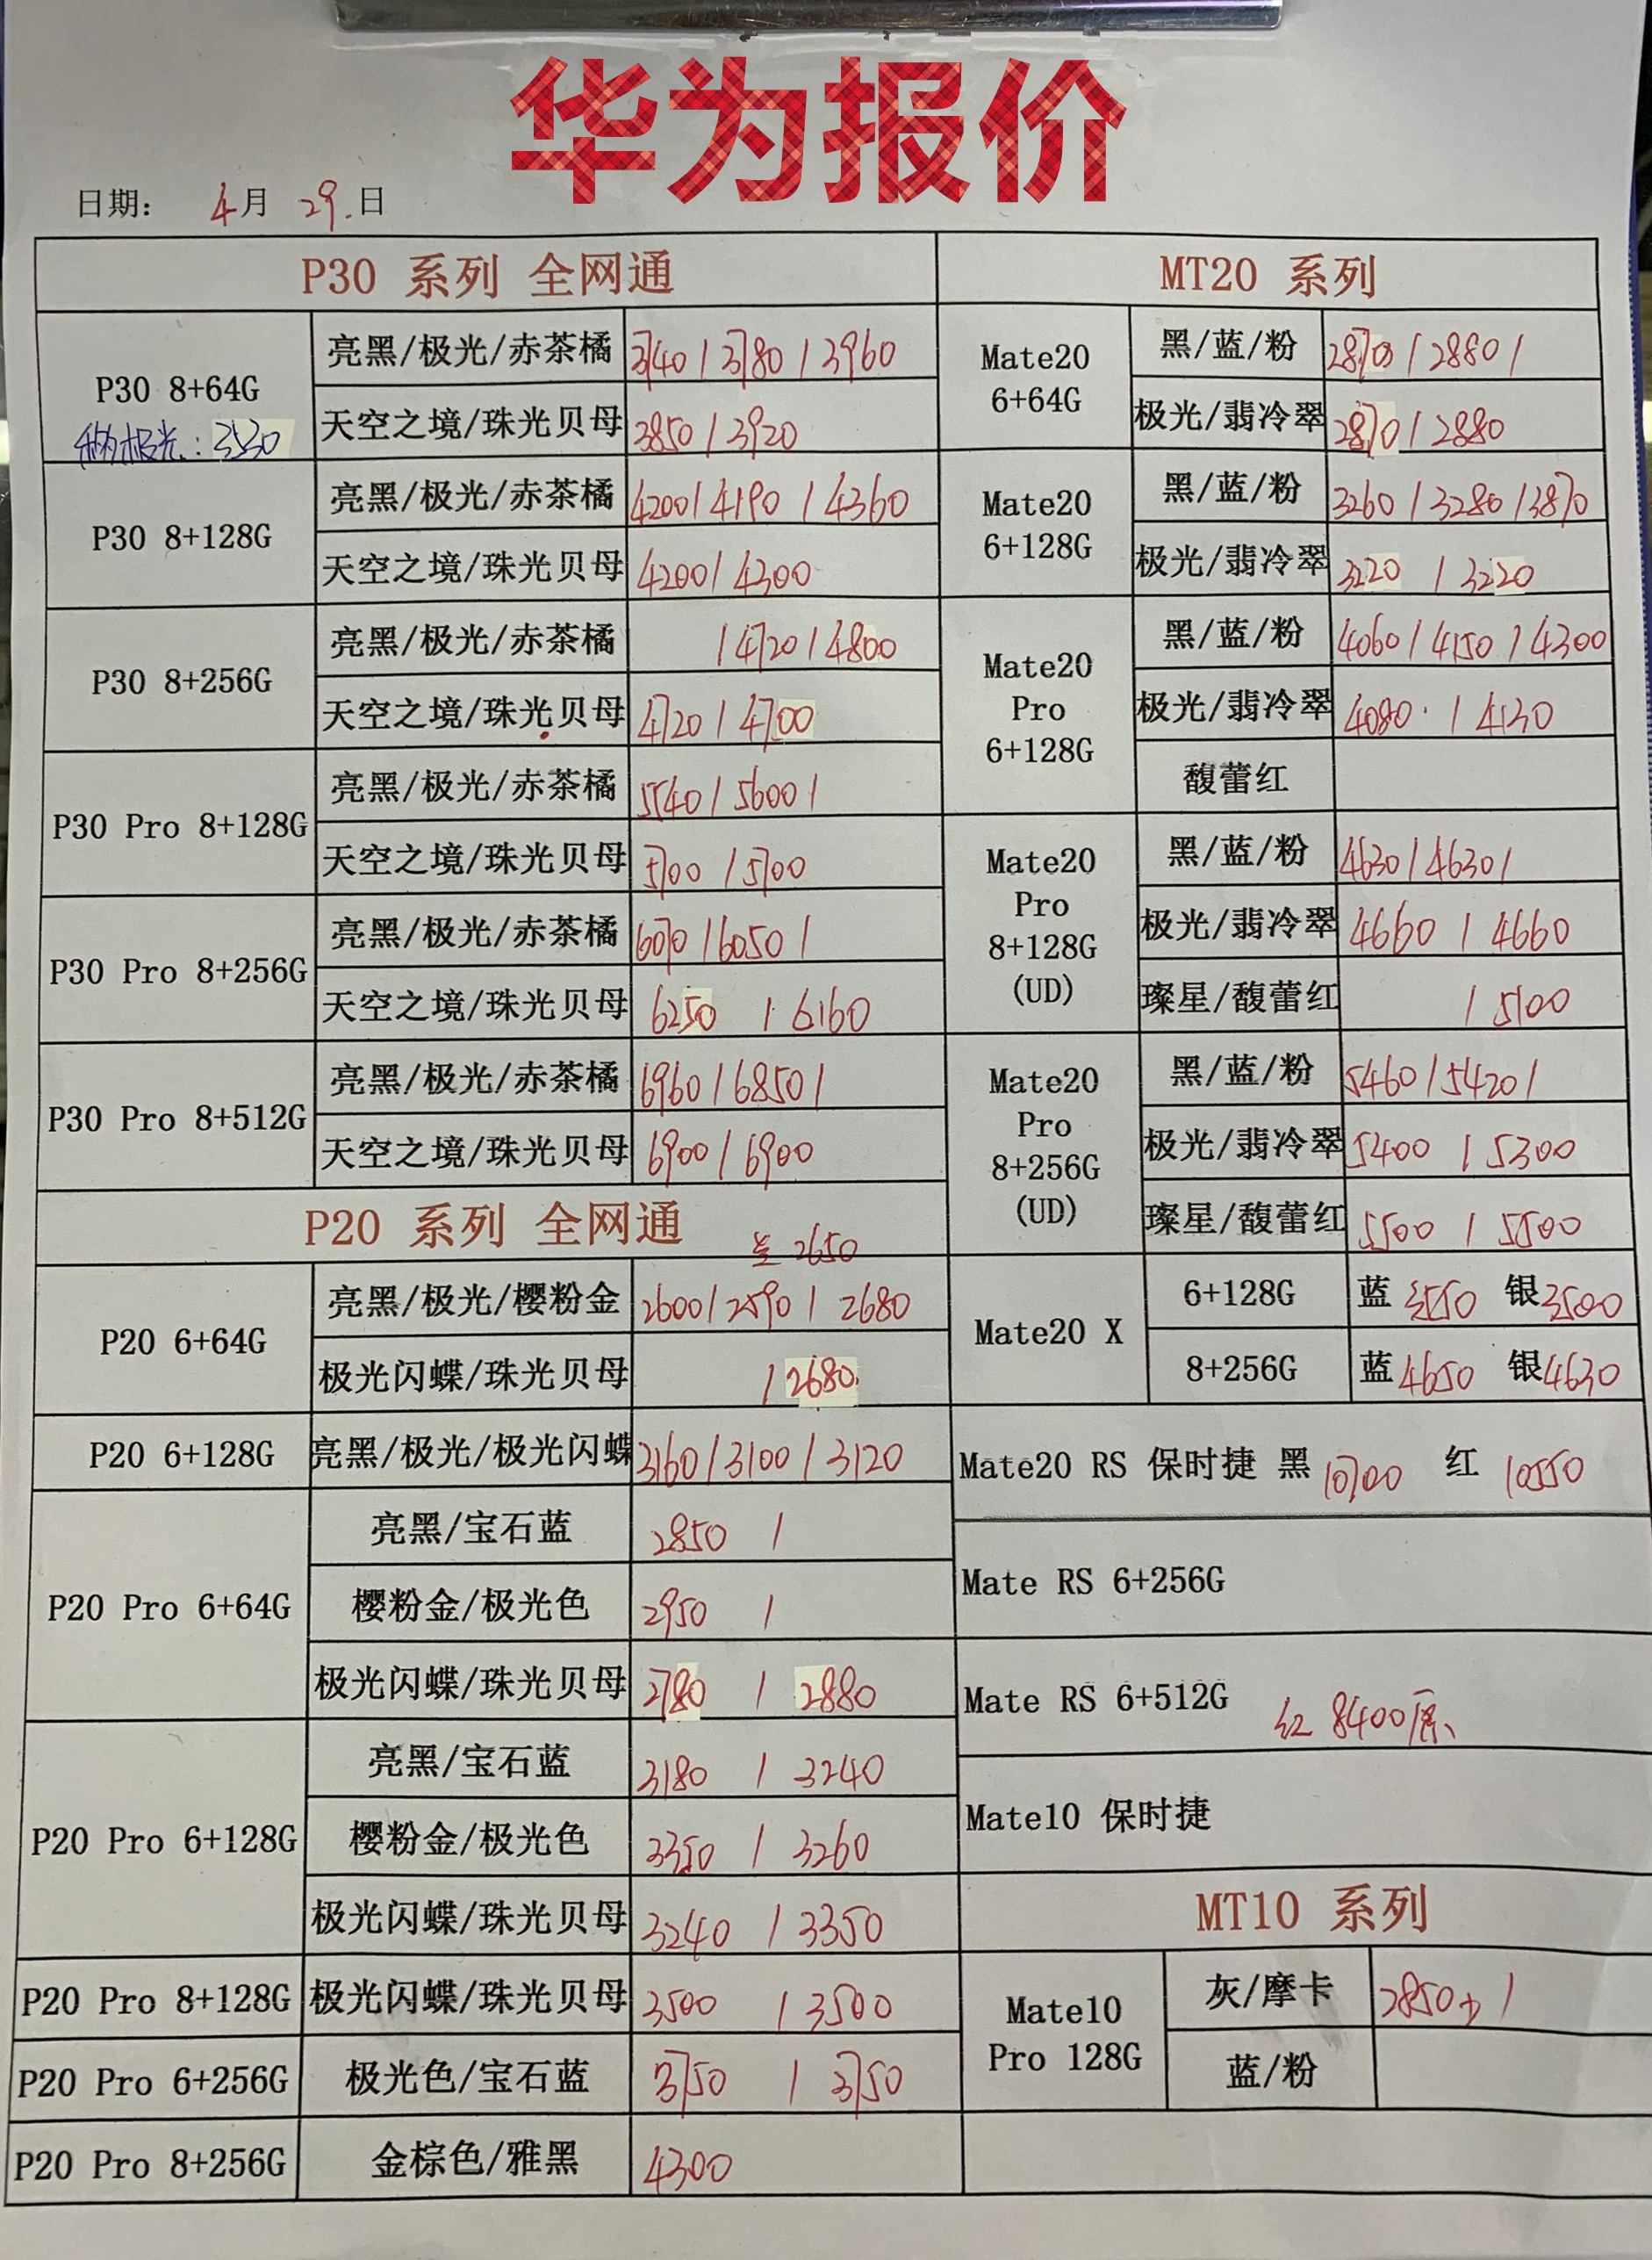 华为报价
日期: 4月 29.日
P30 系列 全网通
P30 8+64G
极光:3530
亮黑/极光/赤茶橘 3740 / 3780 / 3960
天空之境/珠光贝母 3850 / 3920
P30 8+128G
亮黑/极光/赤茶橘 4200 / 4190 / 4360
天空之境/珠光贝母 4200 / 4300
P30 8+256G
亮黑/极光/赤茶橘 / 4720 / 4800
天空之境/珠光贝母 4720 / 4700
P30 Pro 8+128G
亮黑/极光/赤茶橘 5540 / 5600 /
天空之境/珠光贝母 5700 / 5700
P30 Pro 8+256G
亮黑/极光/赤茶橘 6070 / 6050 /
天空之境/珠光贝母 6250 / 6160
P30 Pro 8+512G
亮黑/极光/赤茶橘 6960 / 6850 /
天空之境/珠光贝母 6900 / 6900
P20 系列 全网通
2650
P20 6+64G
亮黑/极光/樱粉金 2600 / 2590 / 2680
极光闪蝶/珠光贝母 / 2680.
P20 6+128G
亮黑/极光/极光闪蝶 3160 / 3100 / 3120
P20 Pro 6+64G
亮黑/宝石蓝 2850 /
樱粉金/极光色 2950 /
极光闪蝶/珠光贝母 2780 / 2880
P20 Pro 6+128G
亮黑/宝石蓝 3180 / 3240
樱粉金/极光色 3350 / 3260
极光闪蝶/珠光贝母 3240 / 3350
P20 Pro 8+128G
极光闪蝶/珠光贝母 3500 / 3500
P20 Pro 6+256G
极光色/宝石蓝 3750 / 3750
P20 Pro 8+256G
金棕色/雅黑 4300
MT20 系列
Mate20
6+64G
黑/蓝/粉 2870 / 2880 /
极光/翡冷翠 2870 / 2880
Mate20
6+128G
黑/蓝/粉 3260 / 3280 / 3870
极光/翡冷翠 3220 / 3220
Mate20
Pro
6+128G
黑/蓝/粉 4060 / 4150 / 4300
极光/翡冷翠 4080. / 4130
馥蕾红
Mate20
Pro
8+128G
(UD)
黑/蓝/粉 4630 / 4630 /
极光/翡冷翠 4660 / 4660
璨星/馥蕾红 / 5100
Mate20
Pro
8+256G
(UD)
黑/蓝/粉 5460 / 5420 /
极光/翡冷翠 5400 / 5300
璨星/馥蕾红 5500 / 5500
Mate20 X
6+128G 蓝 3550 银3500
8+256G 蓝4650 银4630
Mate20 RS 保时捷 黑 10700 红 10550
Mate RS 6+256G
Mate RS 6+512G 红 8400原
Mate10 保时捷
MT10 系列
Mate10
Pro 128G
灰/摩卡 2850 /
蓝/粉